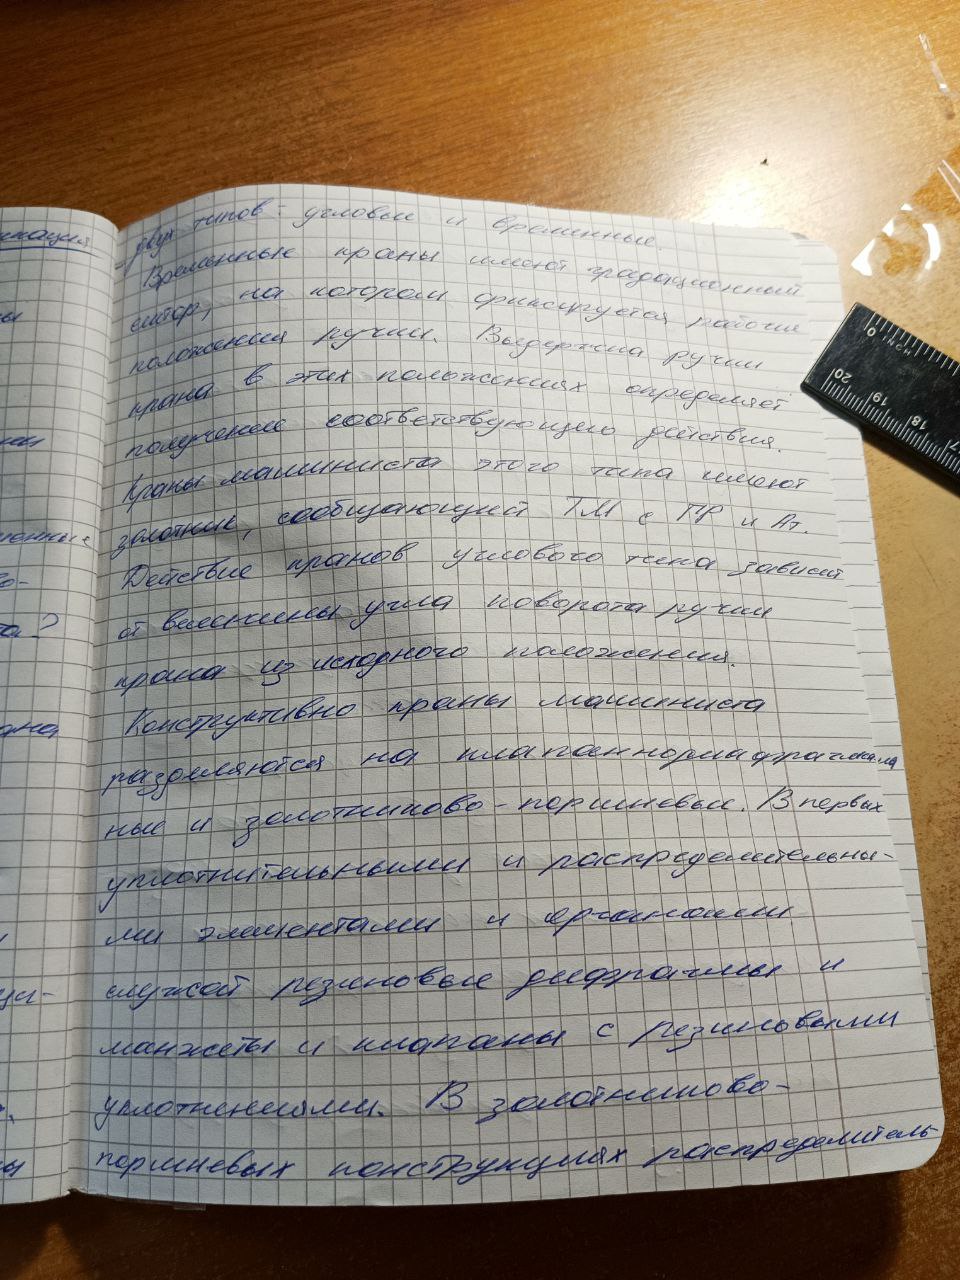 двух типов: угловые и временные.
Временные краны имеют градационный
сектор, на котором фиксируется рабочие
положения ручки. Выдержка ручки
крана в этих положениях определяет
получение соответствующего действия.
Краны машиниста этого типа имеют
золотник, сообщающий ТМ с ГР и Ат.
Действие кранов углового типа зависит
от величины угла поворота ручки
крана из исходного положения.
Конструктивно краны машиниста
разделяются на
ные и золотниково-поршневые. В первых
уплотнительными и распределительны-
ми элементами и органами
служат резиновые диафрагмы и
манжеты и клапаны с резиновыми
уплотнениями. В золотниково-
поршневых конструкциях распределитель-
0 INCH
20 19 18 17